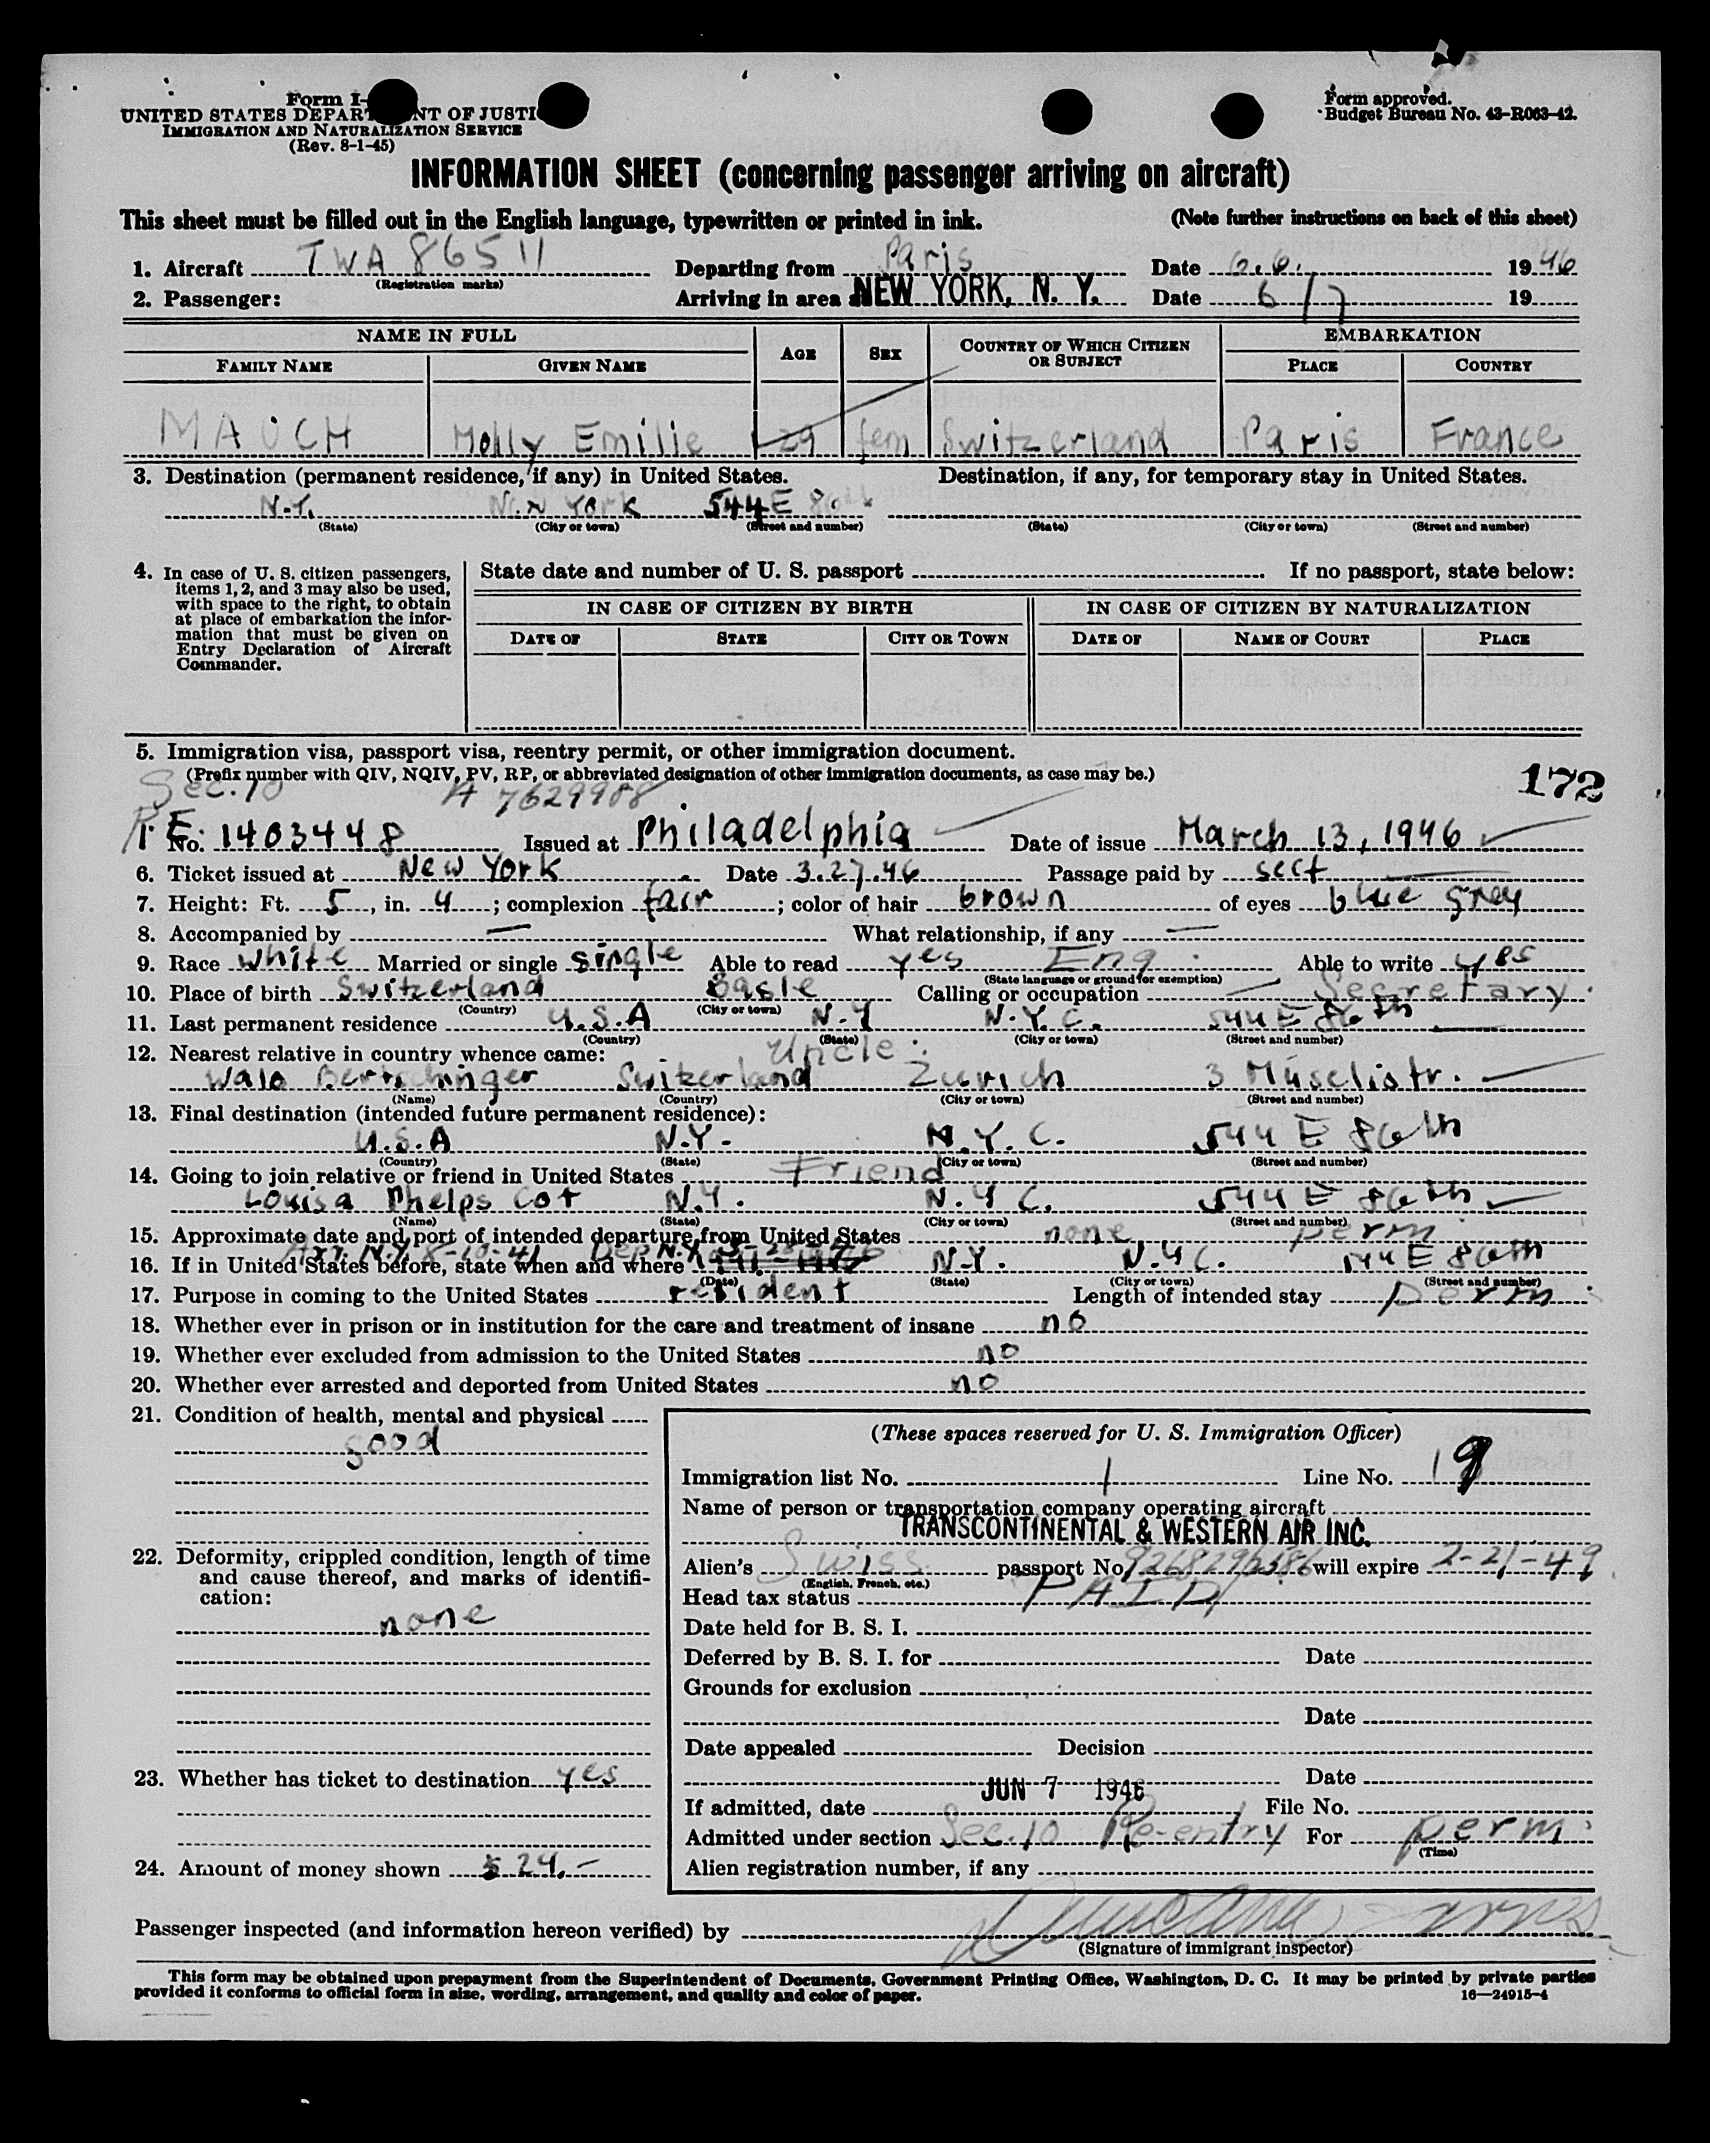 Form I-
UNITED STATES DEPART NT OF JUSTI
IMMIGRATION AND NATURALIZATION SERVICE
(Rev. 8-1-45)
Form approved.
Budget Bureau No. 43-R063-42.
INFORMATION SHEET (concerning passenger arriving on aircraft)
This sheet must be filled out in the English language, typewritten or printed in ink. (Note further instructions on back of this sheet)
1. Aircraft TWA 86511 Departing from Paris Date 6.6. 1946
(Registration marks)
2. Passenger: Arriving in area NEW YORK, N. Y. Date 6/7 19
NAME IN FULL AGE SEX COUNTRY OF WHICH CITIZEN OR SUBJECT EMBARKATION
FAMILY NAME GIVEN NAME PLACE COUNTRY
MAUCH Molly Emilie 29 fem Switzerland Paris France
3. Destination (permanent residence, if any) in United States. Destination, if any, for temporary stay in United States.
N.Y. York 544 E
(State) (City or town) (Street and number) (State) (City or town) (Street and number)
4. In case of U. S. citizen passengers, items 1, 2, and 3 may also be used, with space to the right, to obtain at place of embarkation the information that must be given on Entry Declaration of Aircraft Commander.
State date and number of U. S. passport If no passport, state below:
IN CASE OF CITIZEN BY BIRTH IN CASE OF CITIZEN BY NATURALIZATION
DATE OF STATE CITY OR TOWN DATE OF NAME OF COURT PLACE
5. Immigration visa, passport visa, reentry permit, or other immigration document.
(Prefix number with QIV, NQIV, PV, RP, or abbreviated designation of other immigration documents, as case may be.)
172
Sec. 10 A 7629988
No. 1403448 Issued at Philadelphia Date of issue March 13, 1946
6. Ticket issued at New York Date 3.27.46 Passage paid by self
7. Height: Ft. 5, in. 4; complexion fair; color of hair brown of eyes blue grey
8. Accompanied by — What relationship, if any —
9. Race white Married or single single Able to read yes Eng. Able to write yes
(State language or ground for exemption)
10. Place of birth Switzerland Basle Calling or occupation Secretary
(Country) (City or town)
11. Last permanent residence U.S.A N.Y N.Y.C. 544 E 86th
(Country) (State) (City or town) (Street and number)
12. Nearest relative in country whence came: Uncle:
Bertschinger Switzerland Zurich 3
(Name) (Country) (City or town) (Street and number)
13. Final destination (intended future permanent residence):
U.S.A N.Y. N.Y.C. 544 E 86th
(Country) (State) (City or town) (Street and number)
14. Going to join relative or friend in United States Friend
Louisa Phelps Cot N.Y. N.Y C. 544 E 86th
(Name) (State) (City or town) (Street and number)
15. Approximate date and port of intended departure from United States none perm
Arr. N.Y. 8-10-41 Dep N.Y.
16. If in United States before, state when and where N.Y. N.Y C. 544 E 86th
(Date) (State) (City or town) (Street and number)
17. Purpose in coming to the United States resident Length of intended stay perm
18. Whether ever in prison or in institution for the care and treatment of insane no
19. Whether ever excluded from admission to the United States no
20. Whether ever arrested and deported from United States no
21. Condition of health, mental and physical
good
22. Deformity, crippled condition, length of time and cause thereof, and marks of identification:
none
23. Whether has ticket to destination yes
24. Amount of money shown $ 24.-
(These spaces reserved for U. S. Immigration Officer)
Immigration list No. 1 Line No. 9
Name of person or transportation company operating aircraft
TRANSCONTINENTAL & WESTERN AIR INC.
Alien's Swiss passport No. will expire 2-21-49
(English, French, etc.)
Head tax status PAID
Date held for B. S. I.
Deferred by B. S. I. for Date
Grounds for exclusion
Date
Date appealed Decision
Date
If admitted, date JUN 7 1946 File No.
Admitted under section Sec. 10 Re-entry For perm
(Time)
Alien registration number, if any
Passenger inspected (and information hereon verified) by
(Signature of immigrant inspector)
This form may be obtained upon prepayment from the Superintendent of Documents, Government Printing Office, Washington, D. C. It may be printed by private parties
provided it conforms to official form in size, wording, arrangement, and quality and color of paper.
16—24915-4